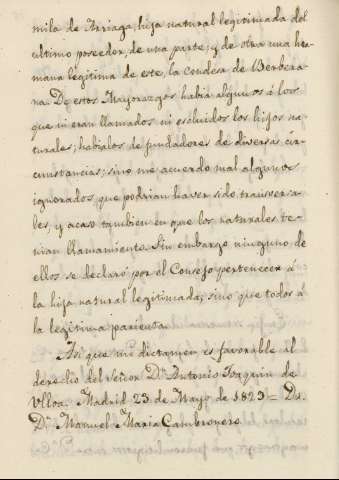 mila de Arriaga, hija natural legitimada del
ultimo poseedor, de una parte; y de otra una her-
mana legitima de este, la condesa de Berbera-
na. De estos Mayorazgos habia algunos á los
que ni eran llamados ni escluidos los hijos na-
turales; habialos de fundadores de diversas cir-
cunstancias; sino me acuerdo mal algunos
ignorados que podrian haver sido transversa-
les, y acaso tambien en que los naturales te-
nian llamamiento. Sin embargo ninguno de
ellos se declaró por el Consejo pertenecer á
la hija natural legitimada, sino que todos á
la legitima parienta.
Asi que mi dictamen es favorable al
derecho del Señor Dn. Antonio Joaquin de
Ulloa. Madrid 23 de Mayo de 1823 = Dr.
Dn. Manuel Maria Cambronero.